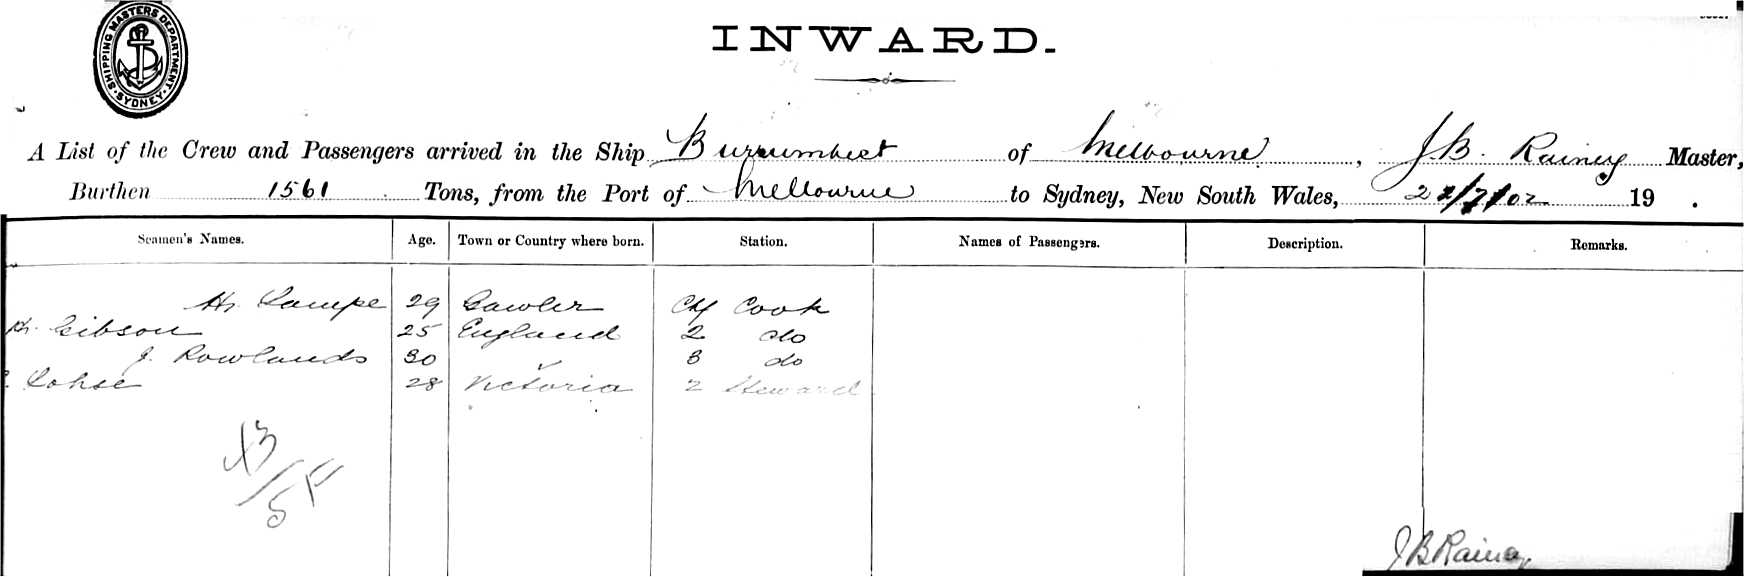 SHIPPING MASTERS DEPARTMENT. SYDNEY.
INWARD.
A List of the Crew and Passengers arrived in the Ship Burrumbeet of Melbourne, J.B. Rainey Master,
Burthen 1561 Tons, from the Port of Melbourne to Sydney, New South Wales, 22/7/02 19 .
Seamen's Names. Age. Town or Country where born. Station. Names of Passengers. Description. Remarks.
Hy Lampe 29 Gawler Chf Cook
Gibson 25 England 2 do
J. Rowlands 30 " 3 do
Lohse 28 Victoria 2 Steward
J B Rainey